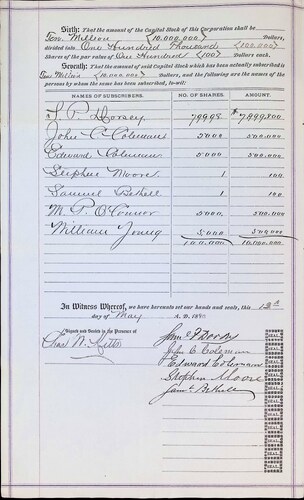 Sixth: That the amount of the Capital Stock of this Corporation shall be
Ten Million (10.000.000) Dollars,
divided into One Hundred Thousand (100.000)
Shares of the par value of One Hundred (100) Dollars each.
Seventh: That the amount of said Capital Stock which has been actually subscribed is
Ten Million (10.000.000) Dollars, and the following are the names of the
persons by whom the same has been subscribed, to-wit:
NAMES OF SUBSCRIBERS. NO. OF SHARES. AMOUNT.
S. P. Dorsey 79.998 $7.999.800
John C Coleman 5.000 500.000
Edward Coleman 5.000 500.000
Stephen Moore 1 100
Samuel Bethell 1 100
M. P. O'Connor 5.000 500.000
William Young 5.000 500.000
100.000 10.000.000
In Witness Whereof, we have hereunto set our hands and seals, this 13th
day of May A. D. 188
Signed and Sealed in the Presence of
Chas N.
John C Coleman
Edward Coleman
Stephen Moore
Saml Bethell
SEAL